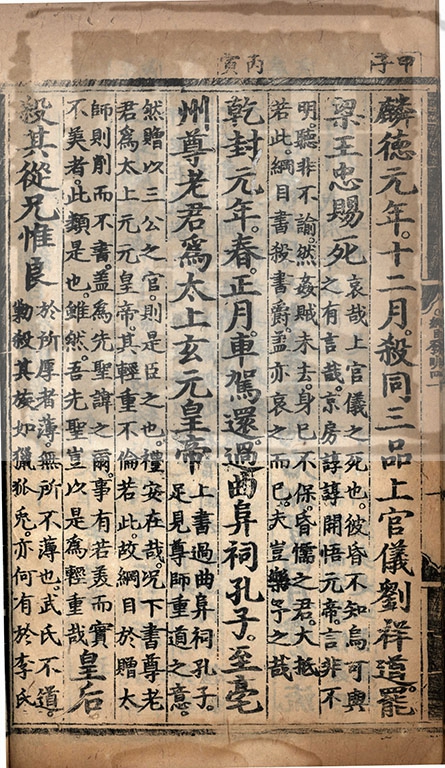 甲子
丙寅
麟德元年。十二月。殺同三品上官儀劉祥道罷
梁王忠賜死
哀哉上官儀之死也。彼昏不知烏可與
之有言哉。京房諄諄開悟元帝。言非不
明聽非不諭。然姦賊未去。身已不保。昏儒之君。大抵
若此。綱目書殺書爵。盖亦哀之而已。夫豈樂予之哉
乾封元年。春。正月。車駕還。過曲阜祠孔子。至亳
州尊老君爲太上玄元皇帝
上書過曲阜祠孔子。
足見尊師重道之意。
然贈以三公之官。則是臣之也。禮安在哉。况下書尊老
君爲太上元元皇帝。其輕重不倫若此。故綱目於贈太
師則削而不書。盖爲先聖諱之爾。事有若羙而實
不羙者。此類是也。雖然。吾先聖豈以是爲輕重哉
皇后
殺其從兄惟良
於所厚者薄。無所不薄也。武氏不道。
勦殺其族如獵狐兎。亦何有於李氏